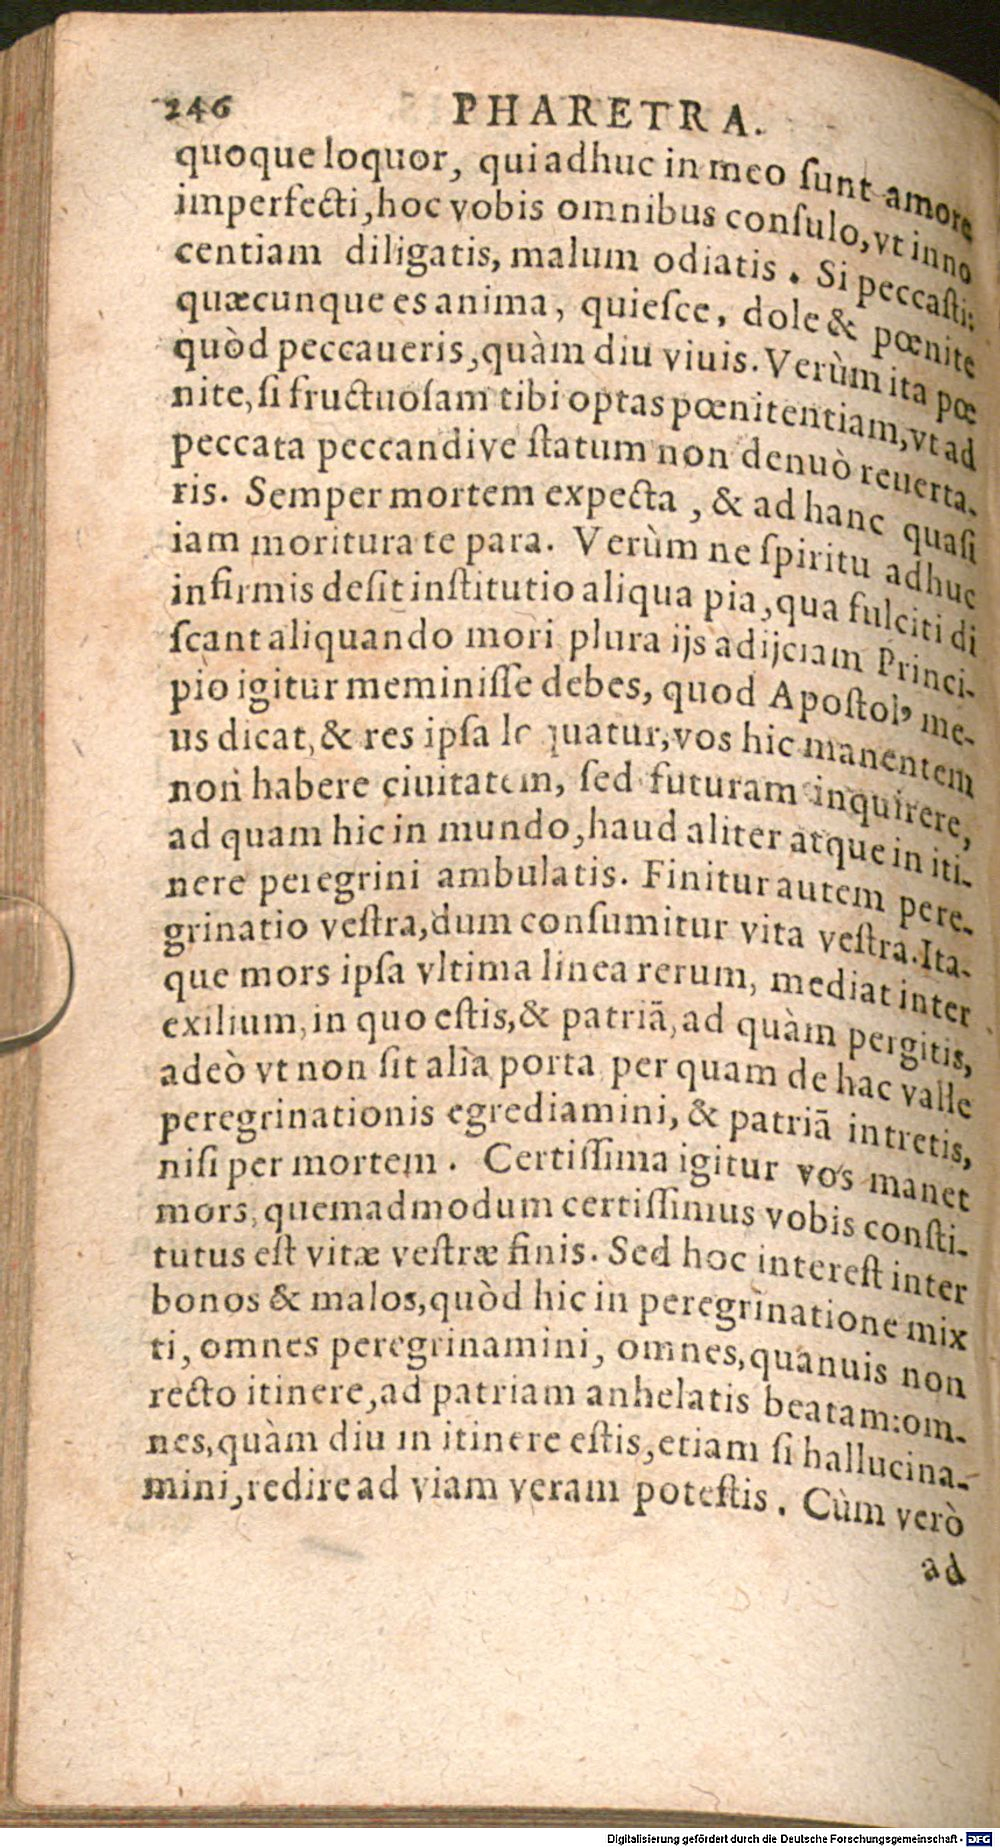 246 PHARETRA.
quoque loquor, qui adhuc in meo ſunt amore
imperfecti, hoc vobis omnibus conſulo, vt inno
centiam diligatis, malum odiatis. Si peccaſti:
quæcunque es anima, quieſce, dole & pœnite
quòd peccaueris, quàm diu viuis. Verùm ita pœ
nite, ſi fructuoſam tibi optas pœnitentiam, vt ad
peccata peccandive ſtatum non denuò reuerta-
ris. Semper mortem expecta, & ad hanc quaſi
iam moritura te para. Verùm ne ſpiritu adhuc
infirmis deſit inſtitutio aliqua pia, qua fulciti di
ſcant aliquando mori plura ijs adijciam Princi-
pio igitur meminiſſe debes, quod Apoſtolꝰ me-
us dicat, & res ipſa loquatur, vos hic manentem
non habere ciuitatem, ſed futuram inquirere,
ad quam hic in mundo, haud aliter atque in iti-
nere peregrini ambulatis. Finitur autem pere-
grinatio veſtra, dum conſumitur vita veſtra. Ita-
que mors ipſa vltima linea rerum, mediat inter
exilium, in quo eſtis, & patriā, ad quàm pergitis,
adeò vt non ſit alia porta per quam de hac valle
peregrinationis egrediamini, & patriā intretis,
niſi per mortem. Certiſſima igitur vos manet
mors, quemadmodum certiſſimus vobis conſti-
tutus eſt vitæ veſtræ finis. Sed hoc intereſt inter
bonos & malos, quòd hic in peregrinatione mix
ti, omnes peregrinamini, omnes, quanuis non
recto itinere, ad patriam anhelatis beatam: om-
nes, quàm diu in itinere eſtis, etiam ſi hallucina-
mini, redire ad viam veram poteſtis. Cùm verò
ad
Digitalisierung gefördert durch die Deutsche Forschungsgemeinschaft - DFG